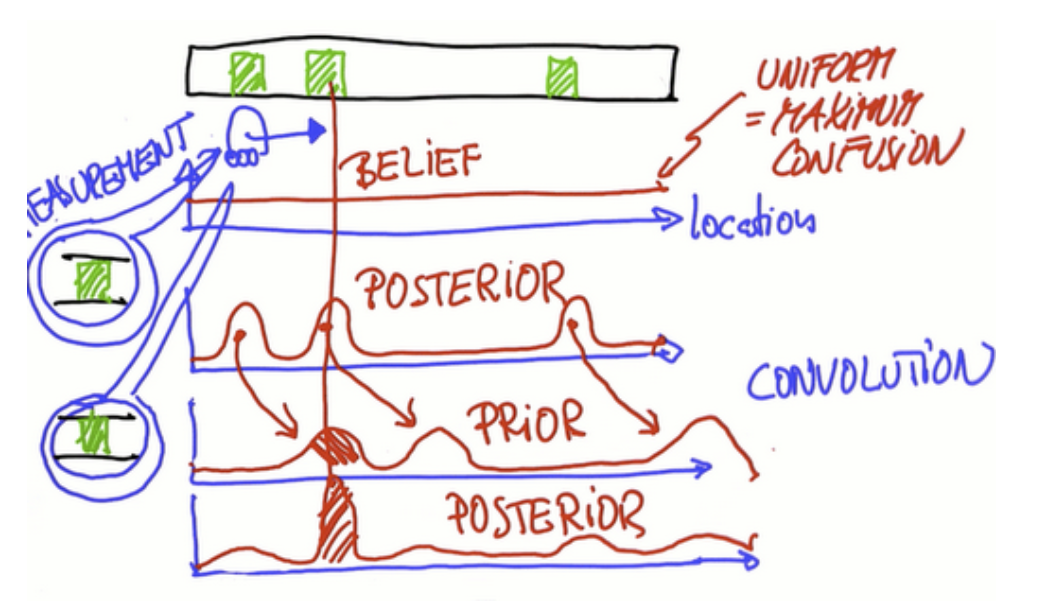 UNIFORM
= MAXIMUM
CONFUSION
BELIEF
location
POSTERIOR
CONVOLUTION
PRIOR
POSTERIOR